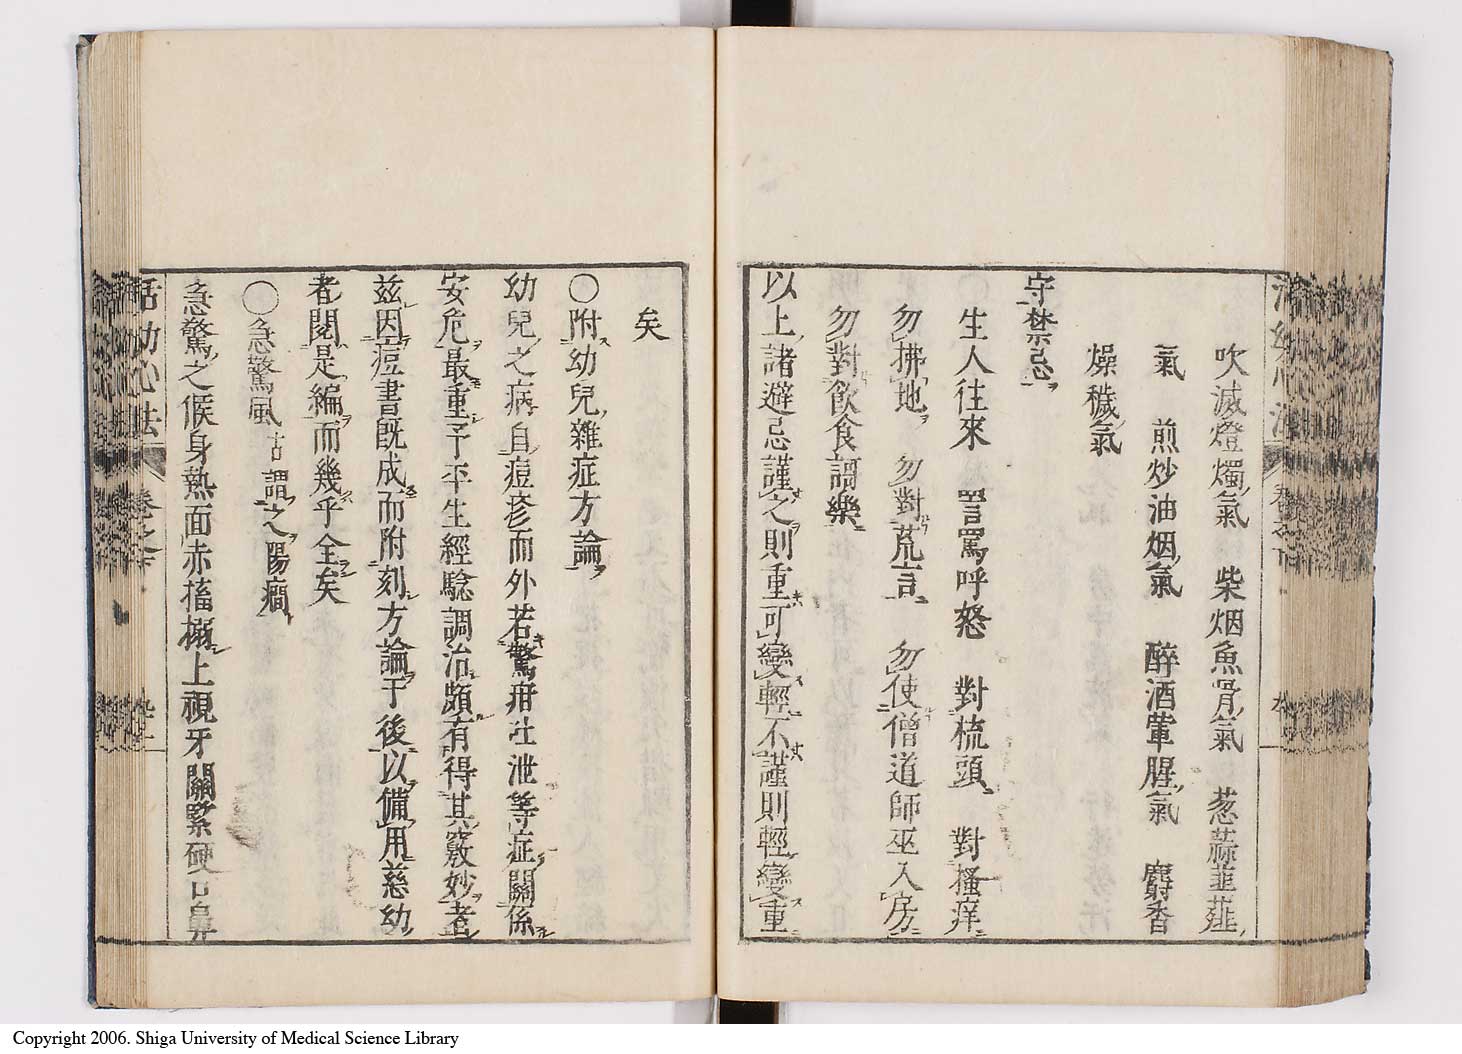 吹滅燈燭氣　柴烟魚骨氣　葱蒜韮薤
氣　煎炒油烟氣　醉酒葷腥氣　麝香
燥穢氣
守禁忌
生人往來　詈罵呼怒　對梳頭　對搔痒
勿拂地　勿對荒言　勿使僧道師巫入房
勿對飲食謌樂
以上諸避忌謹之則重可變輕不謹則輕變重
矣
○附幼兒雜症方論
幼兒之病自痘疹而外若驚疳吐泄等症關係
安危最重予平生經驗調治頗有得其竅妙者
茲因痘書既成而附刻方論于後以備用慈幼
者閱是編而幾乎全矣
○急驚風古謂之陽癎
急驚之候身熱面赤搐搦上視牙關緊硬口鼻
活幼心法 卷之下
Copyright 2006. Shiga University of Medical Science Library